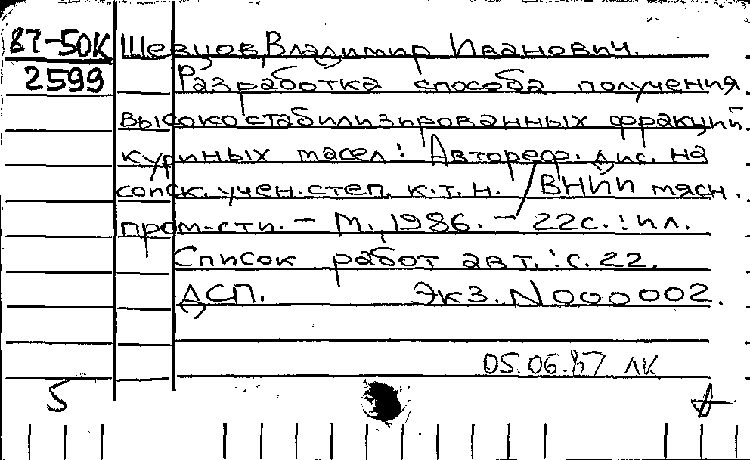 87-50К Шевцов, Владимир Иванович.
2599 Разработка способа получения
высокостабилизированных фракций
куриных масел: Автореф. дис. на
соиск. учен. степ. к.т.н. / ВНИИ мясн.
пром-сти. - М., 1986. - 22с.: ил.
Список работ авт.: с.22.
ДСП. Экз. N000002.
05.06.87 ЛК
5